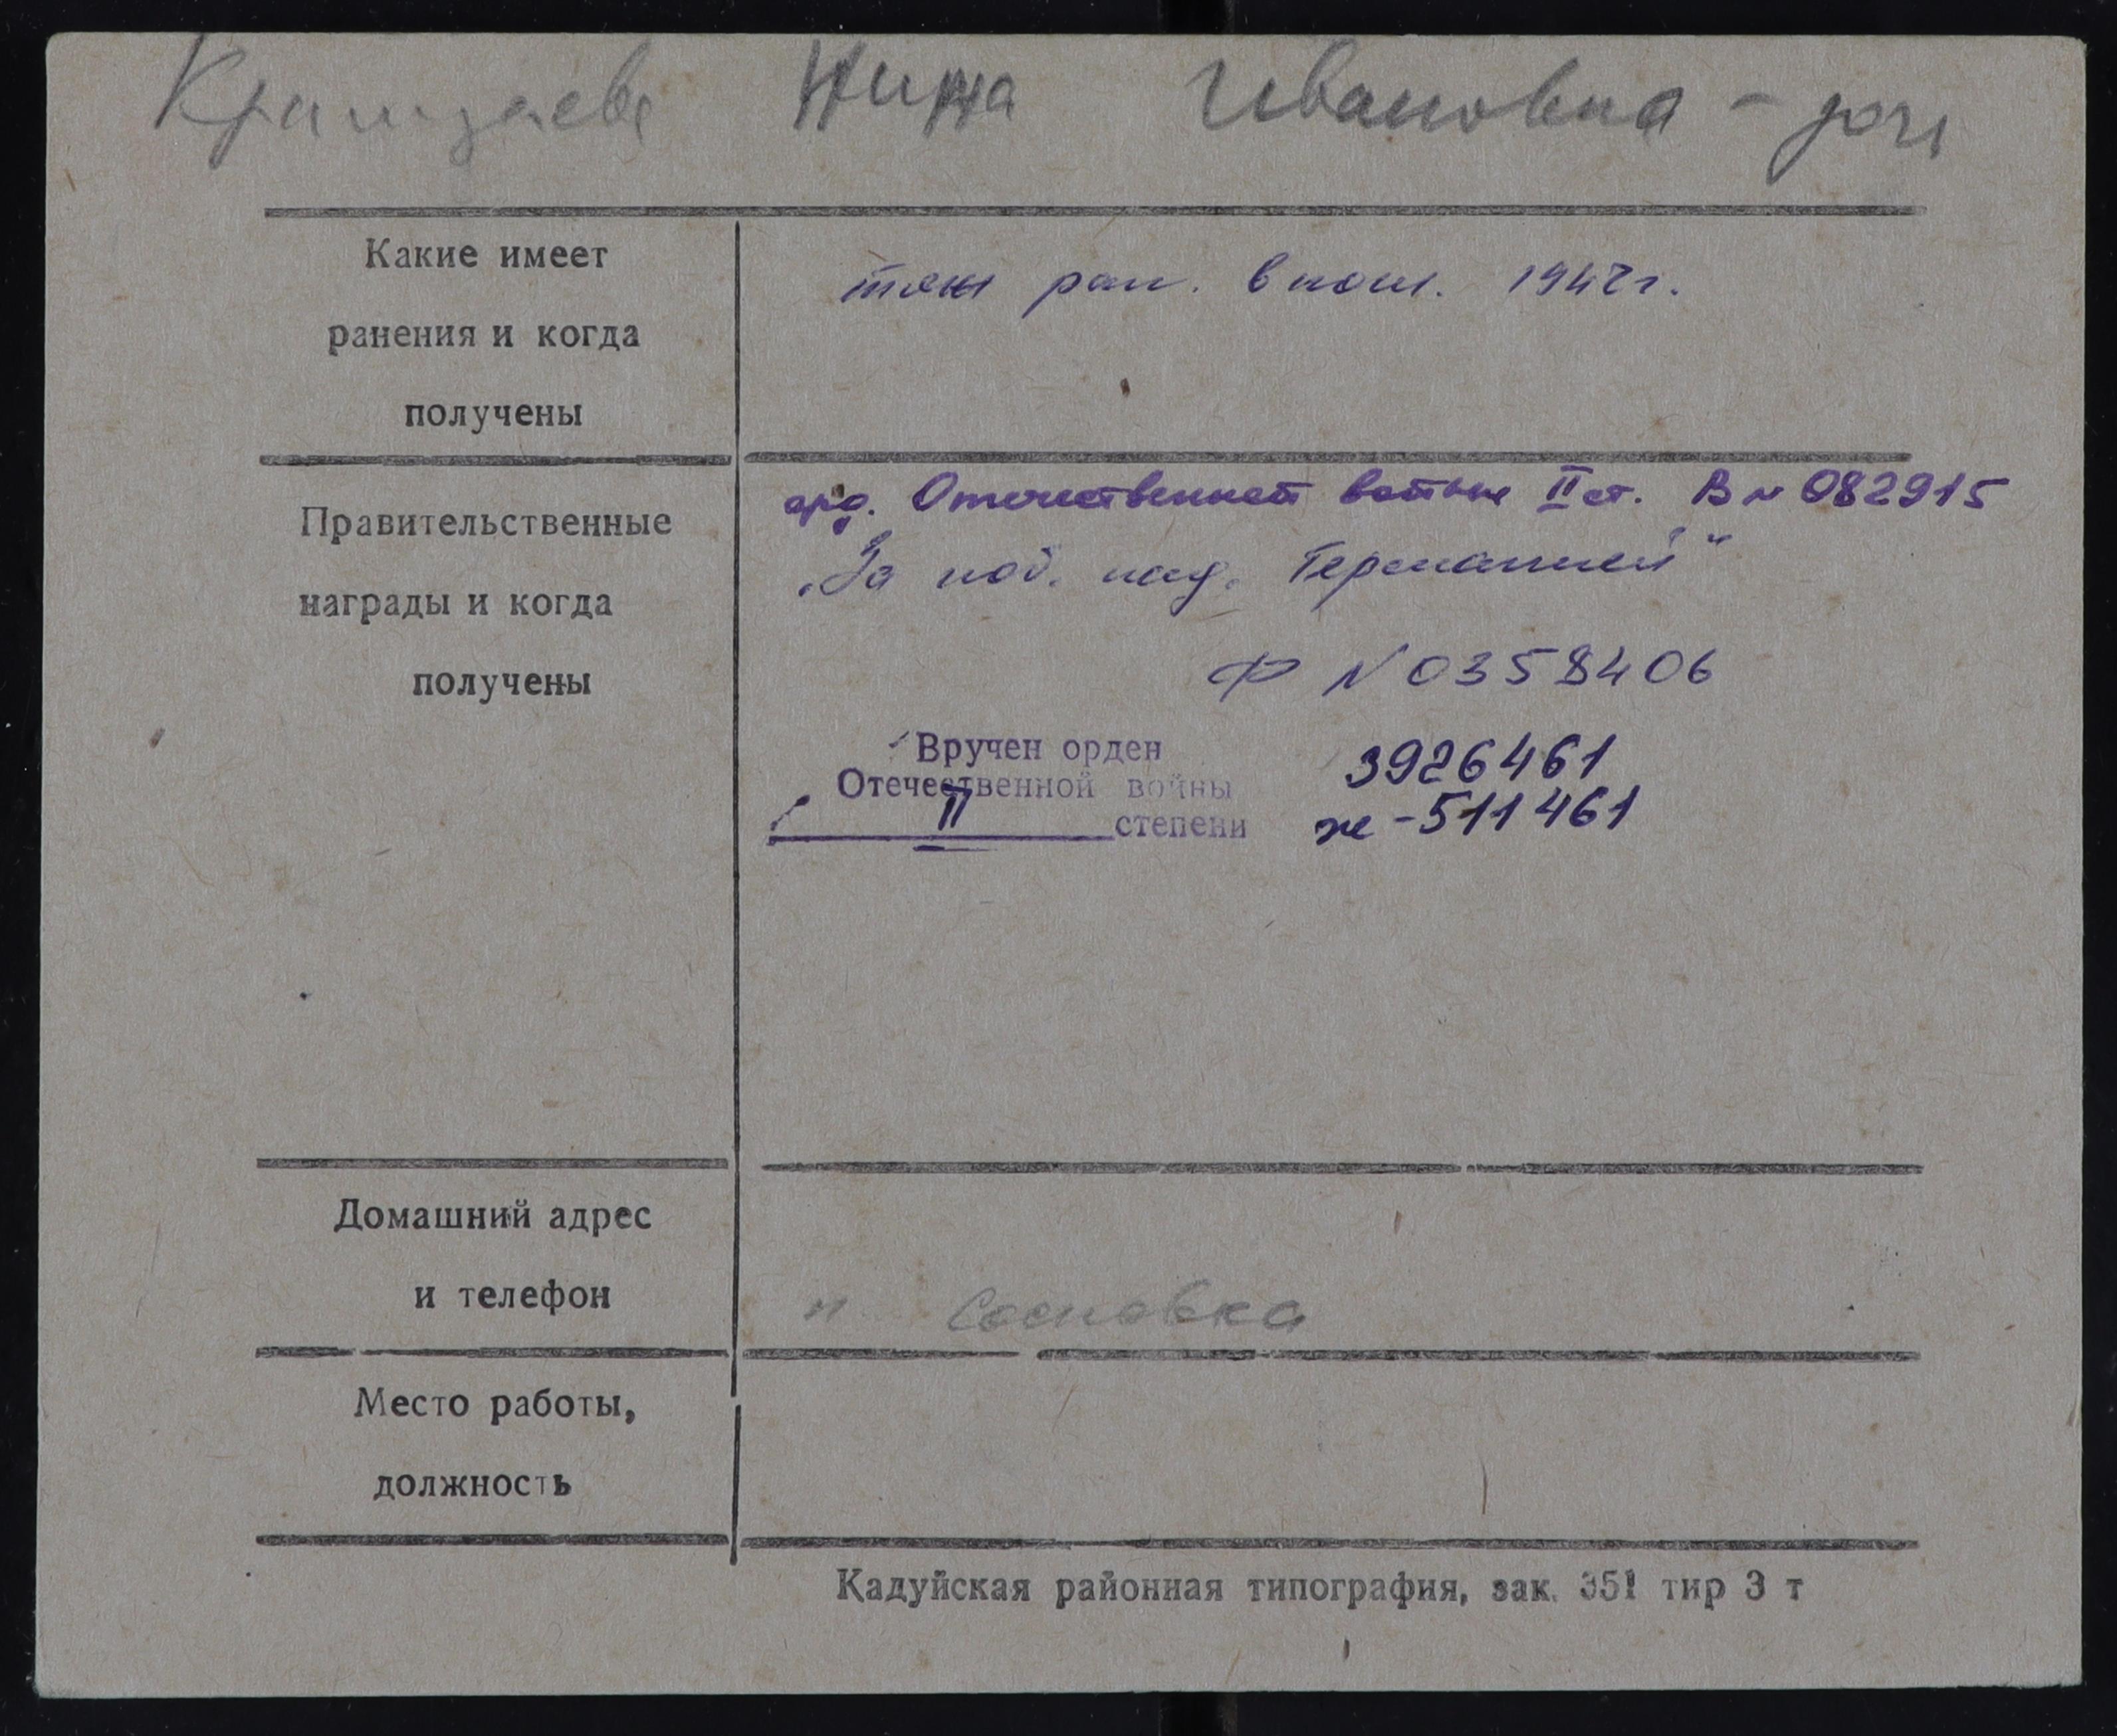 Нина Ивановна - доч
Какие имеет
ранения и когда
получены
тяж ран. в 194 г.
Правительственные
награды и когда
получены
орд. Отечественной войны II ст. В № 082915
„За поб. над. Германией“
Ф № 0358406
Вручен орден
Отечественной войны
II степени
3926461
ж - 511461
Домашний адрес
и телефон
п Сосновка
Место работы,
должность
Кадуйская районная типография, зак. 351 тир 3 т